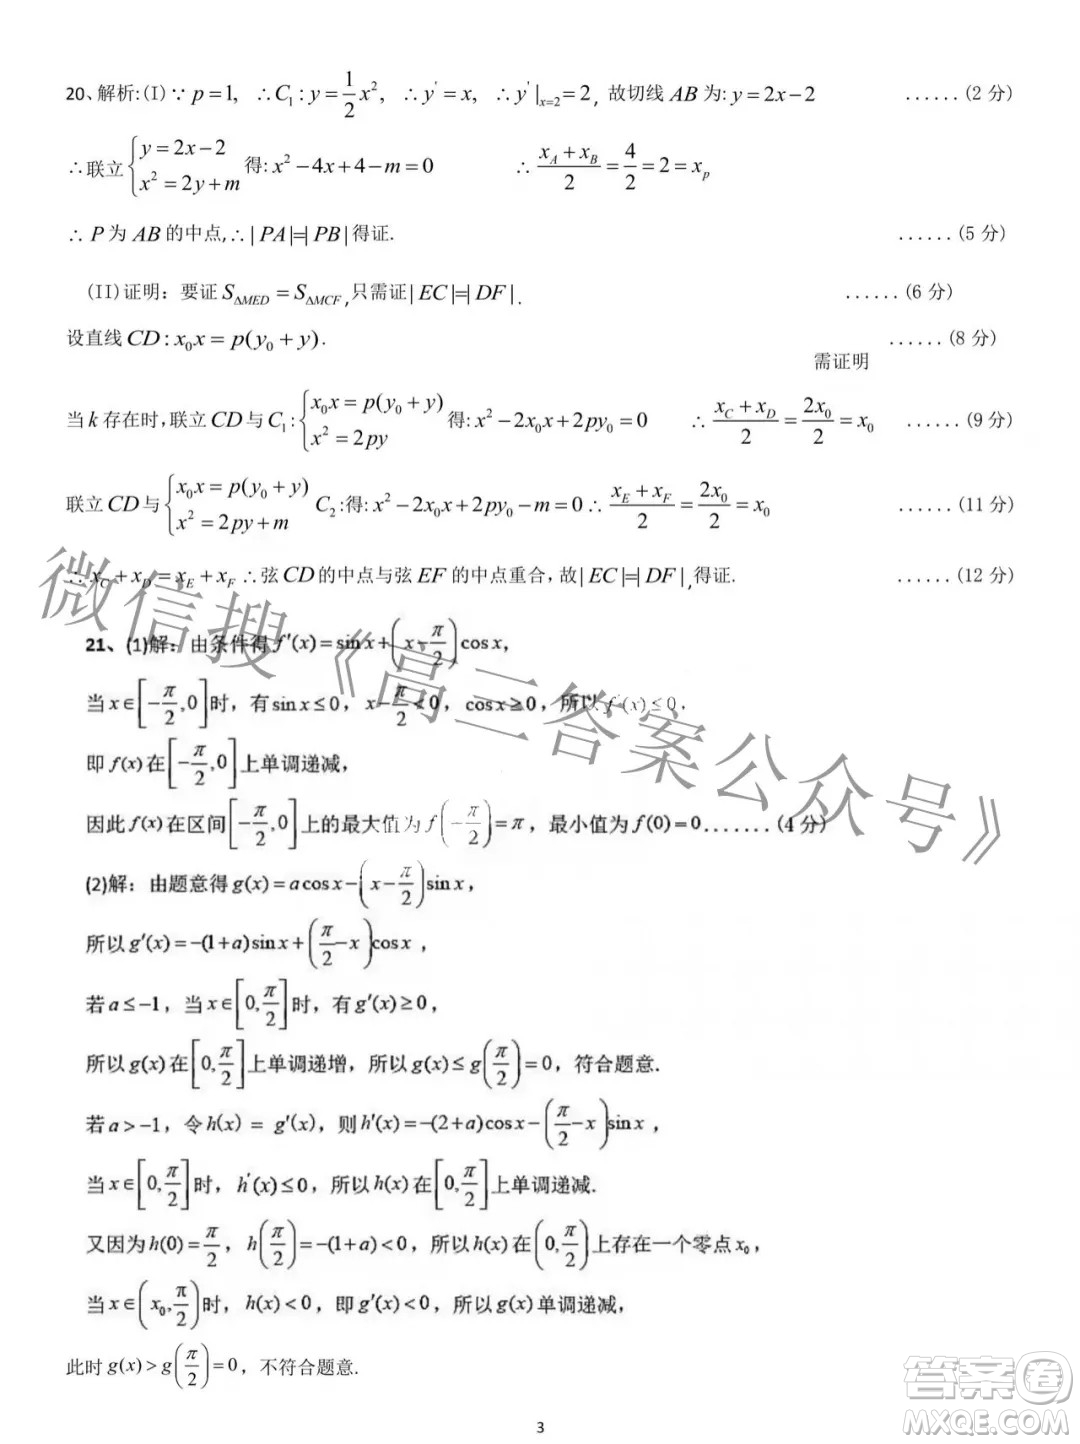 20、解析:(I) ∵ p=1, ∴C₁: y=\frac{1}{2}x², ∴y'=x, ∴y'|ₓ₌₂=2, 故切线 AB 为: y=2x−2 ......(2 分)
∴联立 \begin{cases} y=2x-2 \\ x²=2y+m \end{cases} 得: x²−4x+4−m=0 ∴ \frac{x_A+x_B}{2}=\frac{4}{2}=2=x_p
∴ P 为 AB 的中点,∴|PA|=|PB|得证. ......(5 分)
(II)证明: 要证 S_{ΔMED}=S_{ΔMCF},只需证|EC|=|DF|. ......(6 分)
设直线 CD: x₀x=p(y₀+y). ......(8 分)
需证明
当 k 存在时,联立 CD 与 C₁: \begin{cases} x₀x=p(y₀+y) \\ x²=2py \end{cases} 得: x²−2x₀x+2py₀=0 ∴ \frac{x_C+x_D}{2}=\frac{2x₀}{2}=x₀ ......(9 分)
联立 CD 与 \begin{cases} x₀x=p(y₀+y) \\ x²=2py+m \end{cases} C₂:得: x²−2x₀x+2py₀−m=0 ∴ \frac{x_E+x_F}{2}=\frac{2x₀}{2}=x₀ ......(11 分)
∴ x_C+x_D=x_E+x_F ∴弦 CD 的中点与弦 EF 的中点重合,故|EC|=|DF|,得证. ......(12 分)
21、(1)解：由条件得 f'(x)=sinx+(x−\frac{π}{2})cosx,
当 x∈[−\frac{π}{2},0]时，有 sinx≤0，x−\frac{π}{2}<0，cosx≥0，所以 f'(x)≤0,
即 f(x)在[−\frac{π}{2},0]上单调递减，
因此 f(x)在区间[−\frac{π}{2},0]上的最大值为 f(−\frac{π}{2})=π，最小值为 f(0)=0.......(4 分)
(2)解：由题意得 g(x)=acosx−(x−\frac{π}{2})sinx，
所以 g'(x)=−(1+a)sinx+(\frac{π}{2}−x)cosx，
若 a≤−1，当 x∈[0,\frac{π}{2}]时，有 g'(x)≥0，
所以 g(x)在[0,\frac{π}{2}]上单调递增，所以 g(x)≤g(\frac{π}{2})=0，符合题意.
若 a>−1，令 h(x) = g'(x)，则 h'(x)=−(2+a)cosx−(\frac{π}{2}−x)sinx，
当 x∈[0,\frac{π}{2}]时，h'(x)≤0，所以 h(x)在[0,\frac{π}{2}]上单调递减.
又因为 h(0)=\frac{π}{2}，h(\frac{π}{2})=−(1+a)<0，所以 h(x)在(0,\frac{π}{2})上存在一个零点 x₀，
当 x∈(x₀,\frac{π}{2})时，h(x)<0，即 g'(x)<0，所以 g(x)单调递减，
此时 g(x)>g(\frac{π}{2})=0，不符合题意.
3
微信搜《高三答案公众号》
答案卷
MXQE.COM